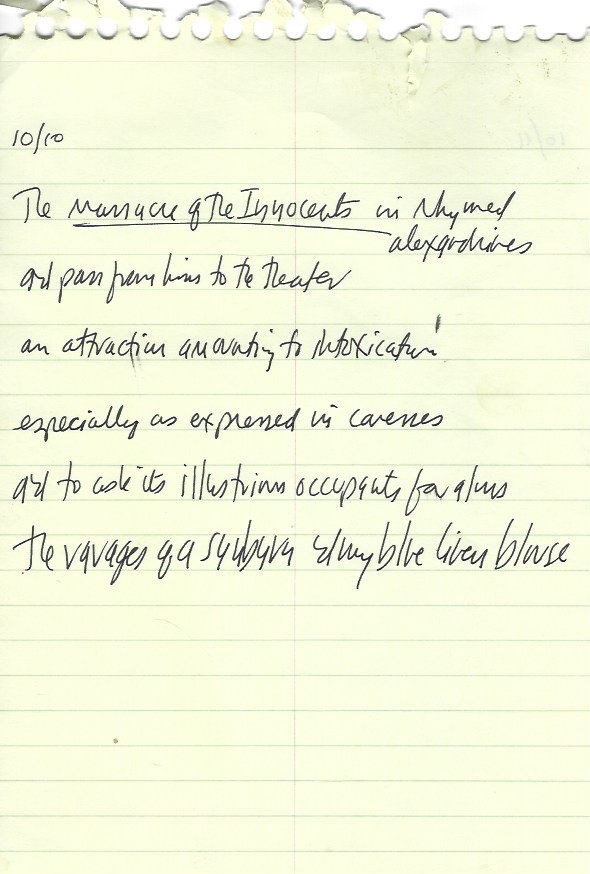 10/10
The Massacre of the Innocents in rhymed
alexandrines
and pass from to the theater
an attraction amounting to intoxication
especially as expressed in caresses
and to ask its illustrious occupants for alms
the ravages of a sunburn & my blue linen blouse